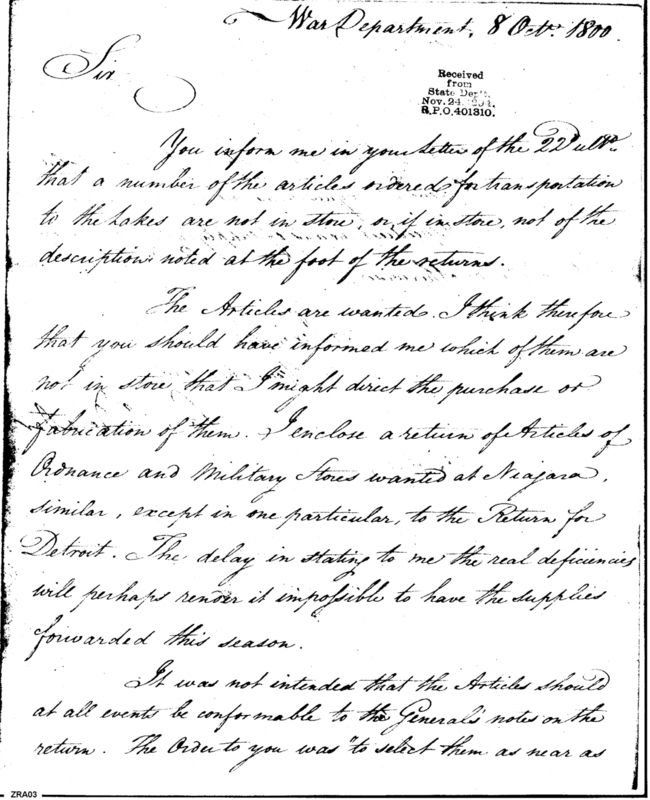 War Department, 8 Octr. 1800.
Sir
Received
from
State Dept.
Nov. 24,
R.P.O. 401310.
You inform me in your Letter of the 22d ulto.
that a number of the articles ordered for transportation
to the Lakes are not in store, or, if in store, not of the
description noted at the foot of the returns.
The Articles are wanted. I think therefore
that you should have informed me which of them are
not in store that I might direct the purchase or
fabrication of them. I enclose a return of Articles of
Ordnance and Military Stores wanted at Niagara,
similar, except in one particular, to the Return for
Detroit. The delay in stating to me the real deficiencies
will perhaps render it impossible to have the supplies
forwarded this season.
It was not intended that the Articles should
at all events be conformable to the General's notes on the
return. The Order to you was "to select them as near as
ZRA03